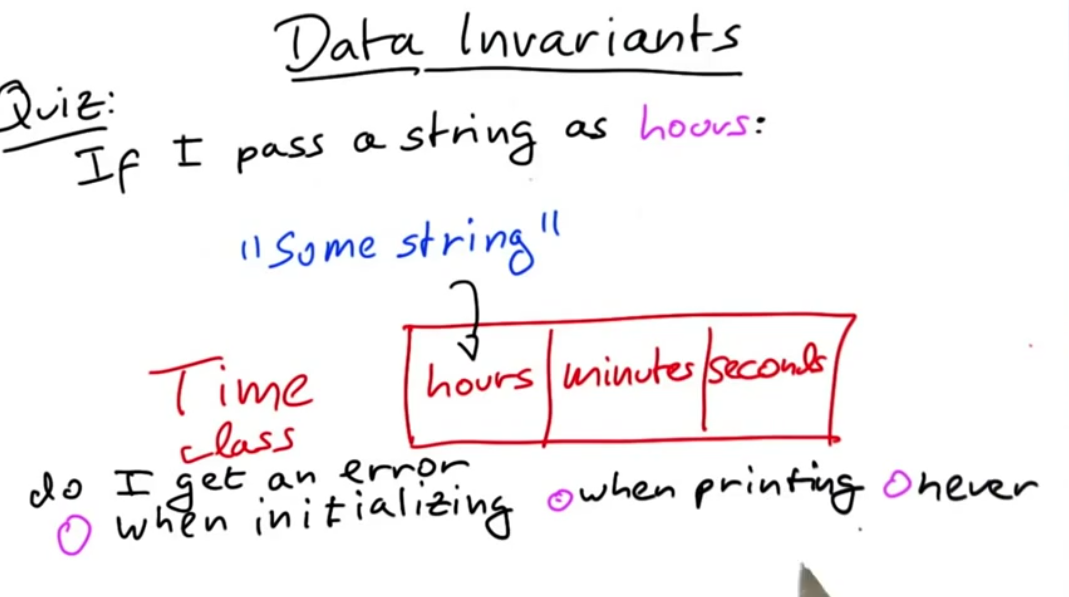 Data Invariants
Quiz:
If I pass a string as hours:
"Some string"
hours minutes seconds
Time
class
do I get an error
when initializing when printing never